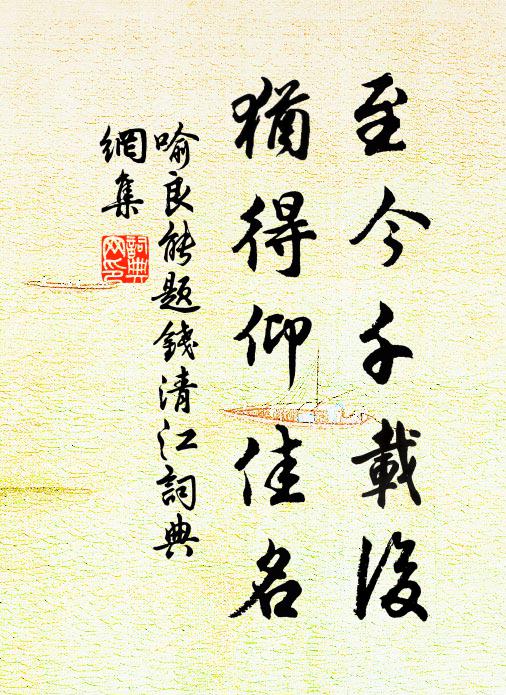 至今千載後
猶得仰佳名
喻良能題錢清江詞典
網集
詞典
网印